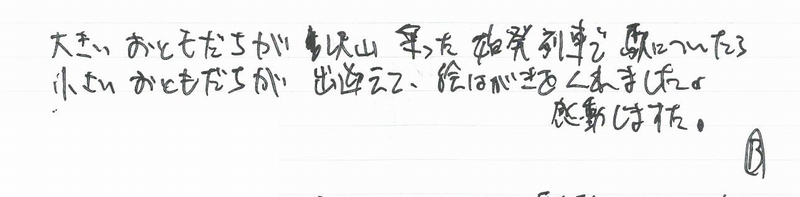 大きい おともだちが 沢山 乗った 始発列車で 駅についたら
小さい おともだちが 出迎えて、絵はがきをくれましたよ
感動しますた。
B